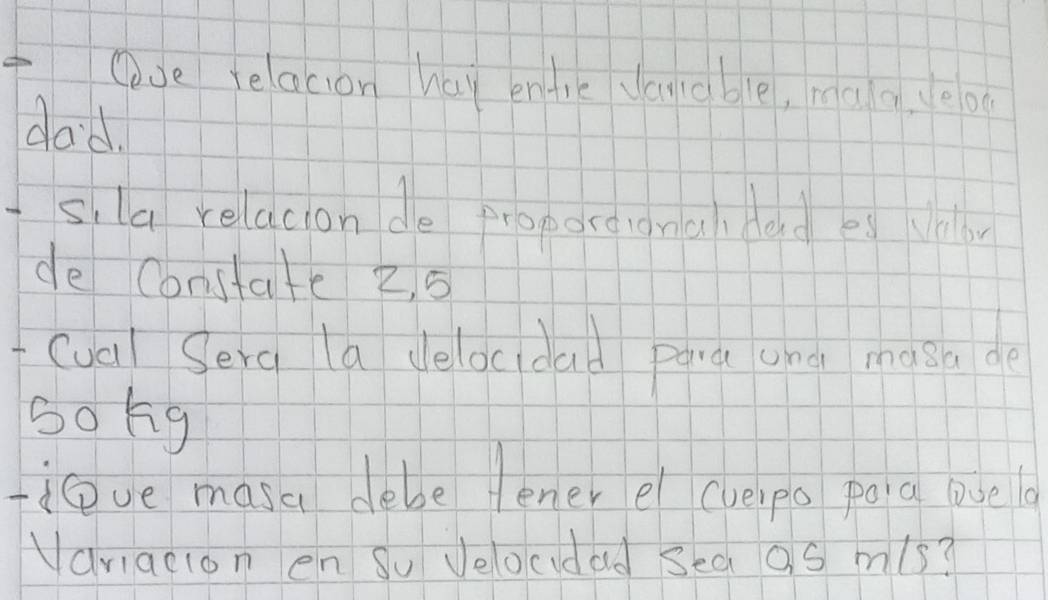 - Que relacion hay entre Variable, masa, veloci
dad.
- si la relacion de proporcionalidad es Valor
de Constate 2,5
- Cual Sera la Velocidad para una masa de
50 kg
- ¿Que masa debe tener el cuerpo para que la
Variacion en su Velocidad sea m/s?